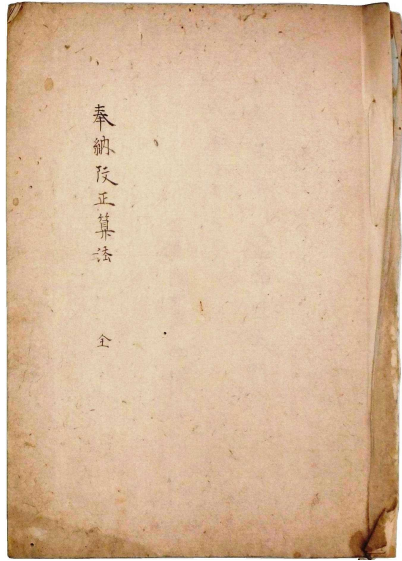 奉納改正算法 全